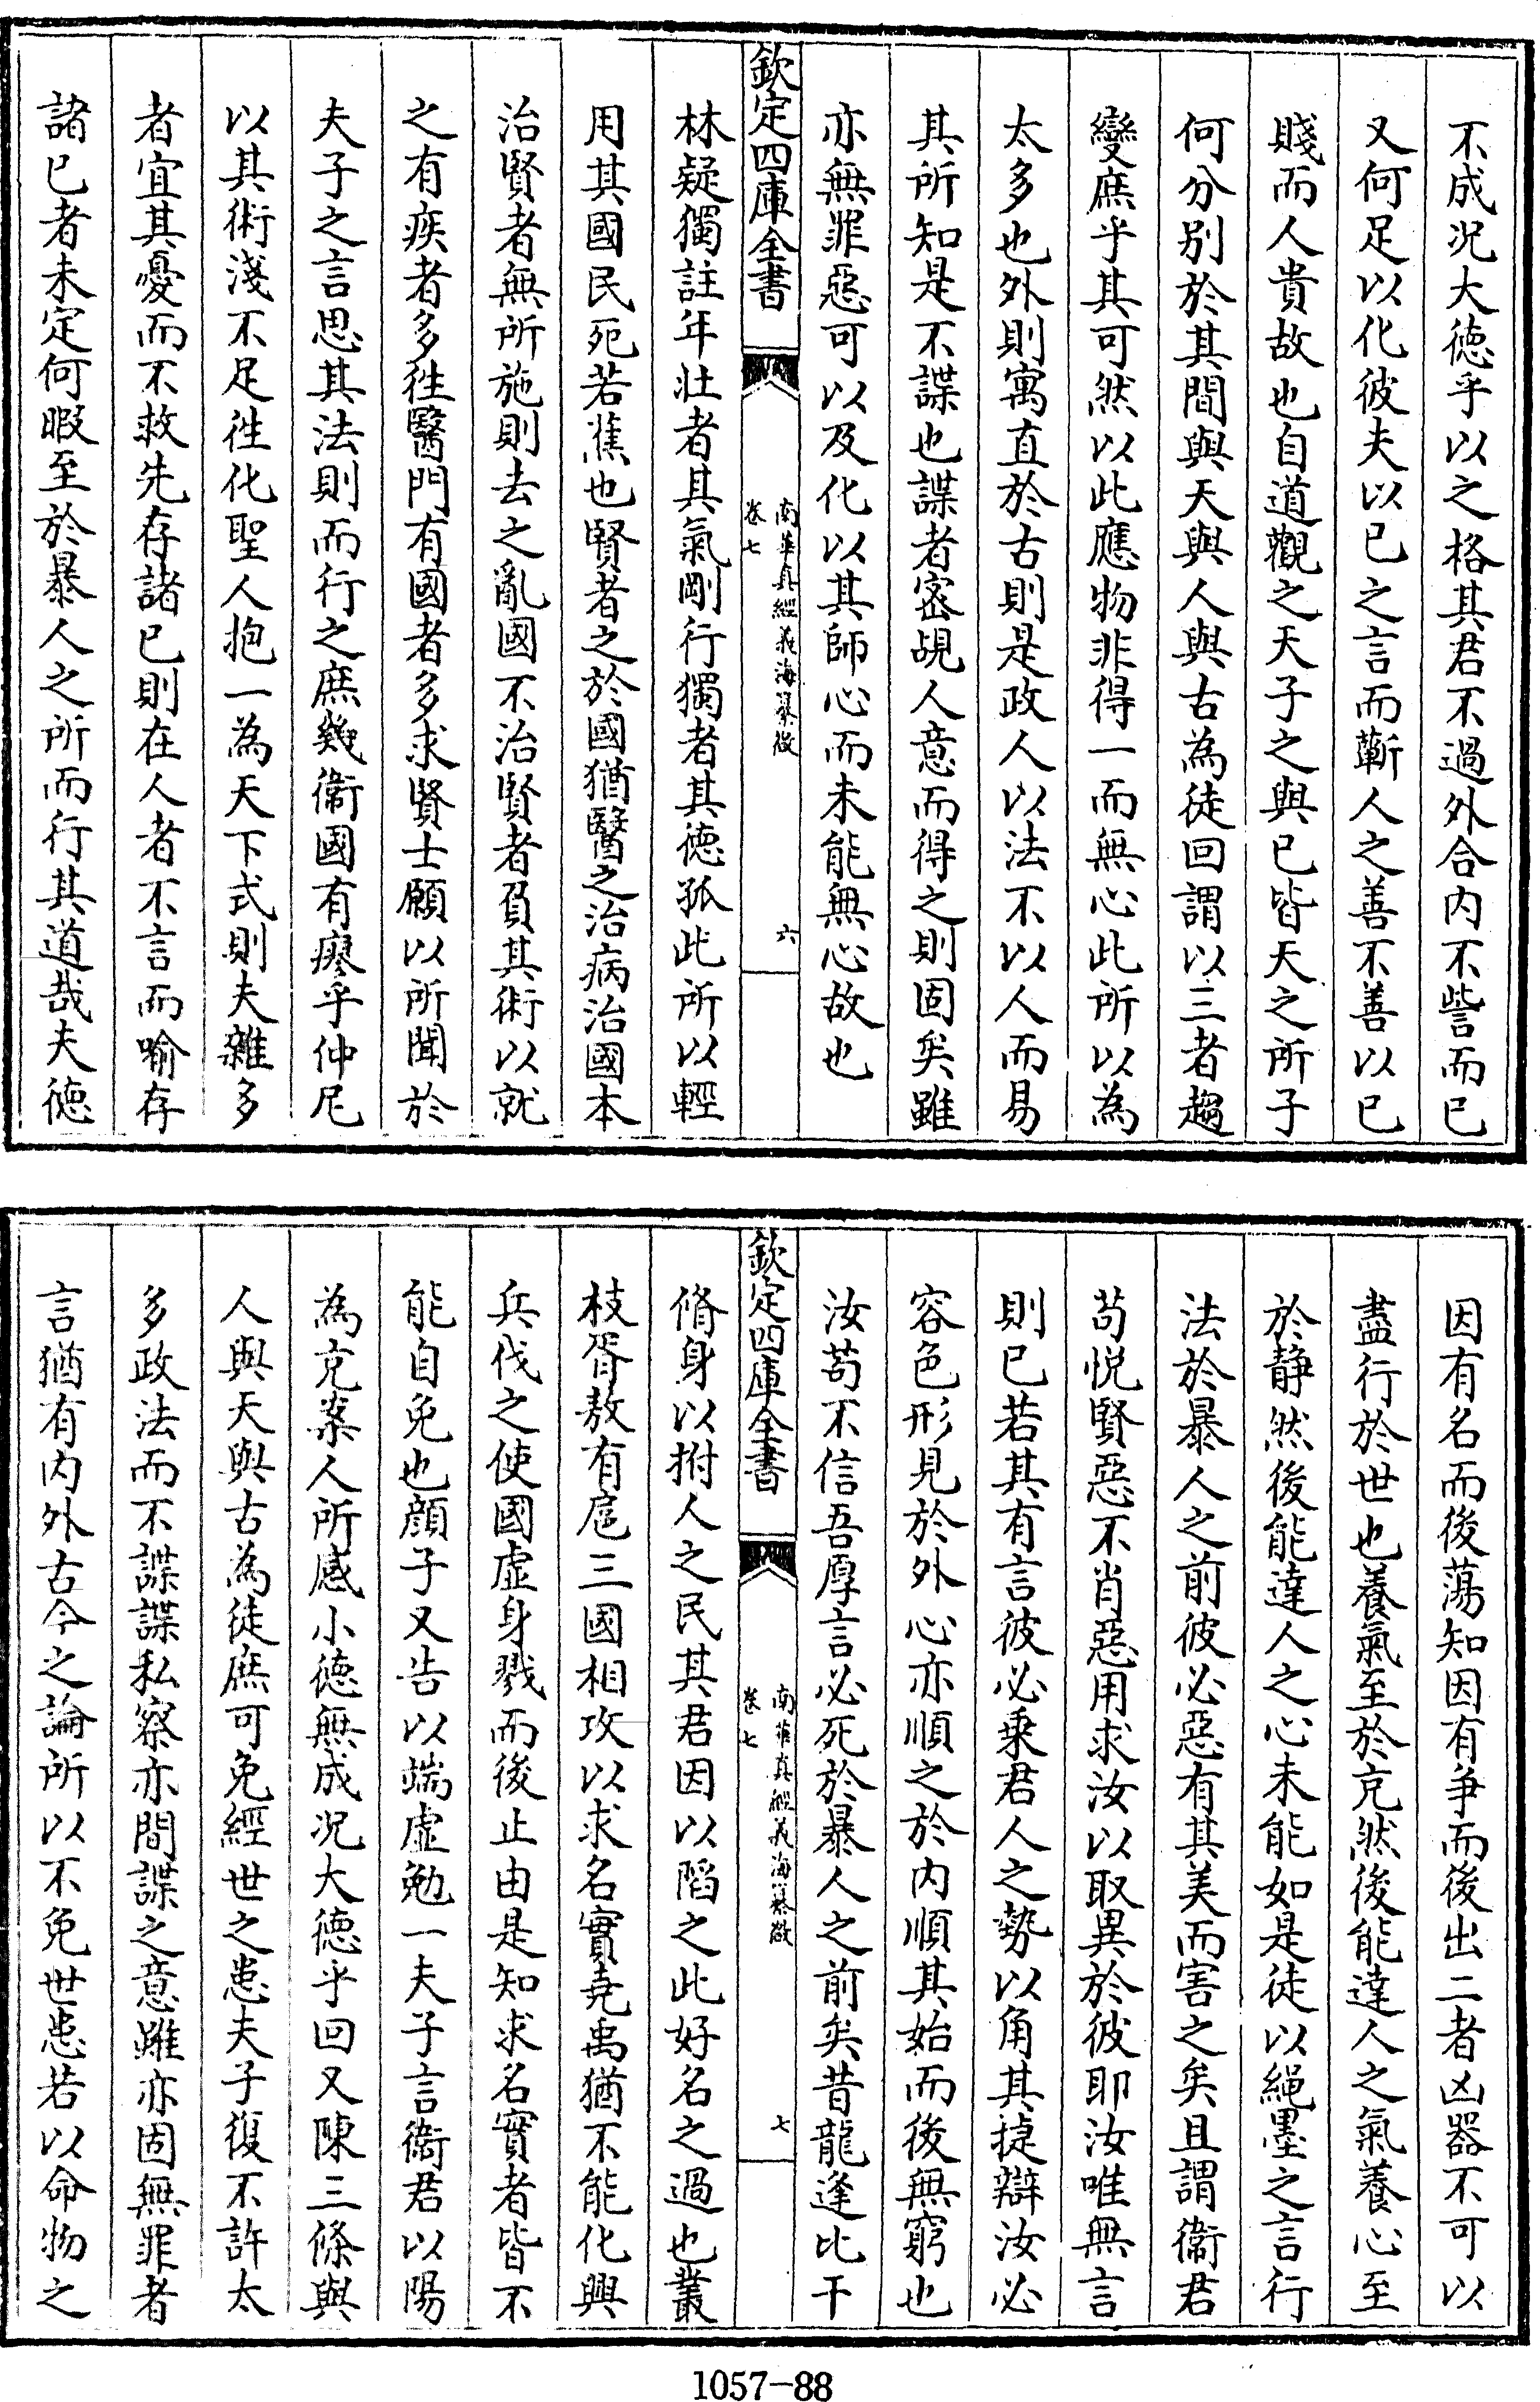 不成况大徳乎以之格其君不過外合内不訾而已
又何足以化彼夫以已之言而蘄人之善不善以已
賤而人貴故也自道觀之天子之與已皆天之所子
何分别於其間與天與人與古為徒回謂以三者趨
變庶乎其可然以此應物非得一而無心此所以為
太多也外則寓直於古則是政人以法不以人而易
其所知是不諜也諜者密覘人意而得之則固矣雖
亦無罪惡可以及化以其師心而未能無心故也
欽定四庫全書
南華真經義海纂微
卷七
六
林疑獨註年壯者其氣剛行獨者其徳孤此所以輕
用其國民死若蕉也賢者之於國猶醫之治病治國本
治賢者無所施則去之亂國不治賢者負其術以就
之有疾者多徃醫門有國者多求賢士願以所聞於
夫子之言思其法則而行之庶幾衞國有瘳乎仲尼
以其術淺不足徃化聖人抱一為天下式則夫雜多
者宜其憂而不救先存諸已則在人者不言而喻存
諸已者未定何暇至於暴人之所而行其道哉夫徳
因有名而後蕩知因有爭而後出二者凶器不可以
盡行於世也養氣至於充然後能達人之氣養心至
於静然後能達人之心未能如是徒以繩墨之言行
法於暴人之前彼必惡有其美而害之矣且謂衞君
苟悦賢惡不肖惡用求汝以取異於彼耶汝唯無言
則已若其有言彼必乘君人之勢以角其捷辯汝必
容色形見於外心亦順之於内順其始而後無窮也
汝苟不信吾厚言必死於暴人之前矣昔龍逢比干
欽定四庫全書
南華真經義海纂微
卷七
七
脩身以拊人之民其君因以䧟之此好名之過也叢
枝胥敖有扈三國相攻以求名實堯禹猶不能化興
兵伐之使國虚身戮而後止由是知求名實者皆不
能自免也顔子又告以端虚勉一夫子言衞君以陽
為充案人所感小徳無成况大徳乎回又陳三條與
人與天與古為徒庶可免經世之患夫子復不許太
多政法而不諜諜私察亦間諜之意雖亦固無罪者
言猶有内外古今之論所以不免世患若以命物之
1057-88